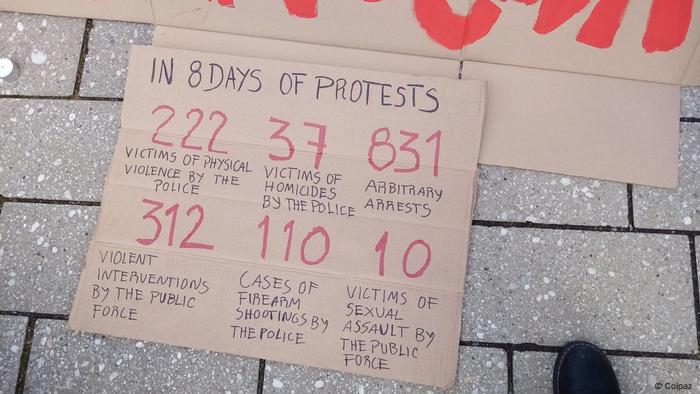 IN 8 DAYS OF PROTESTS
222
VICTIMS OF PHYSICAL
VIOLENCE BY THE
POLICE
37
VICTIMS OF
HOMICIDES
BY THE POLICE
831
ARBITRARY
ARRESTS
312
VIOLENT
INTERVENTIONS
BY THE PUBLIC
FORCE
110
CASES OF
FIREARM
SHOOTINGS BY
THE POLICE
10
VICTIMS OF
SEXUAL
ASSAULT BY
THE PUBLIC
FORCE
© Colpaz